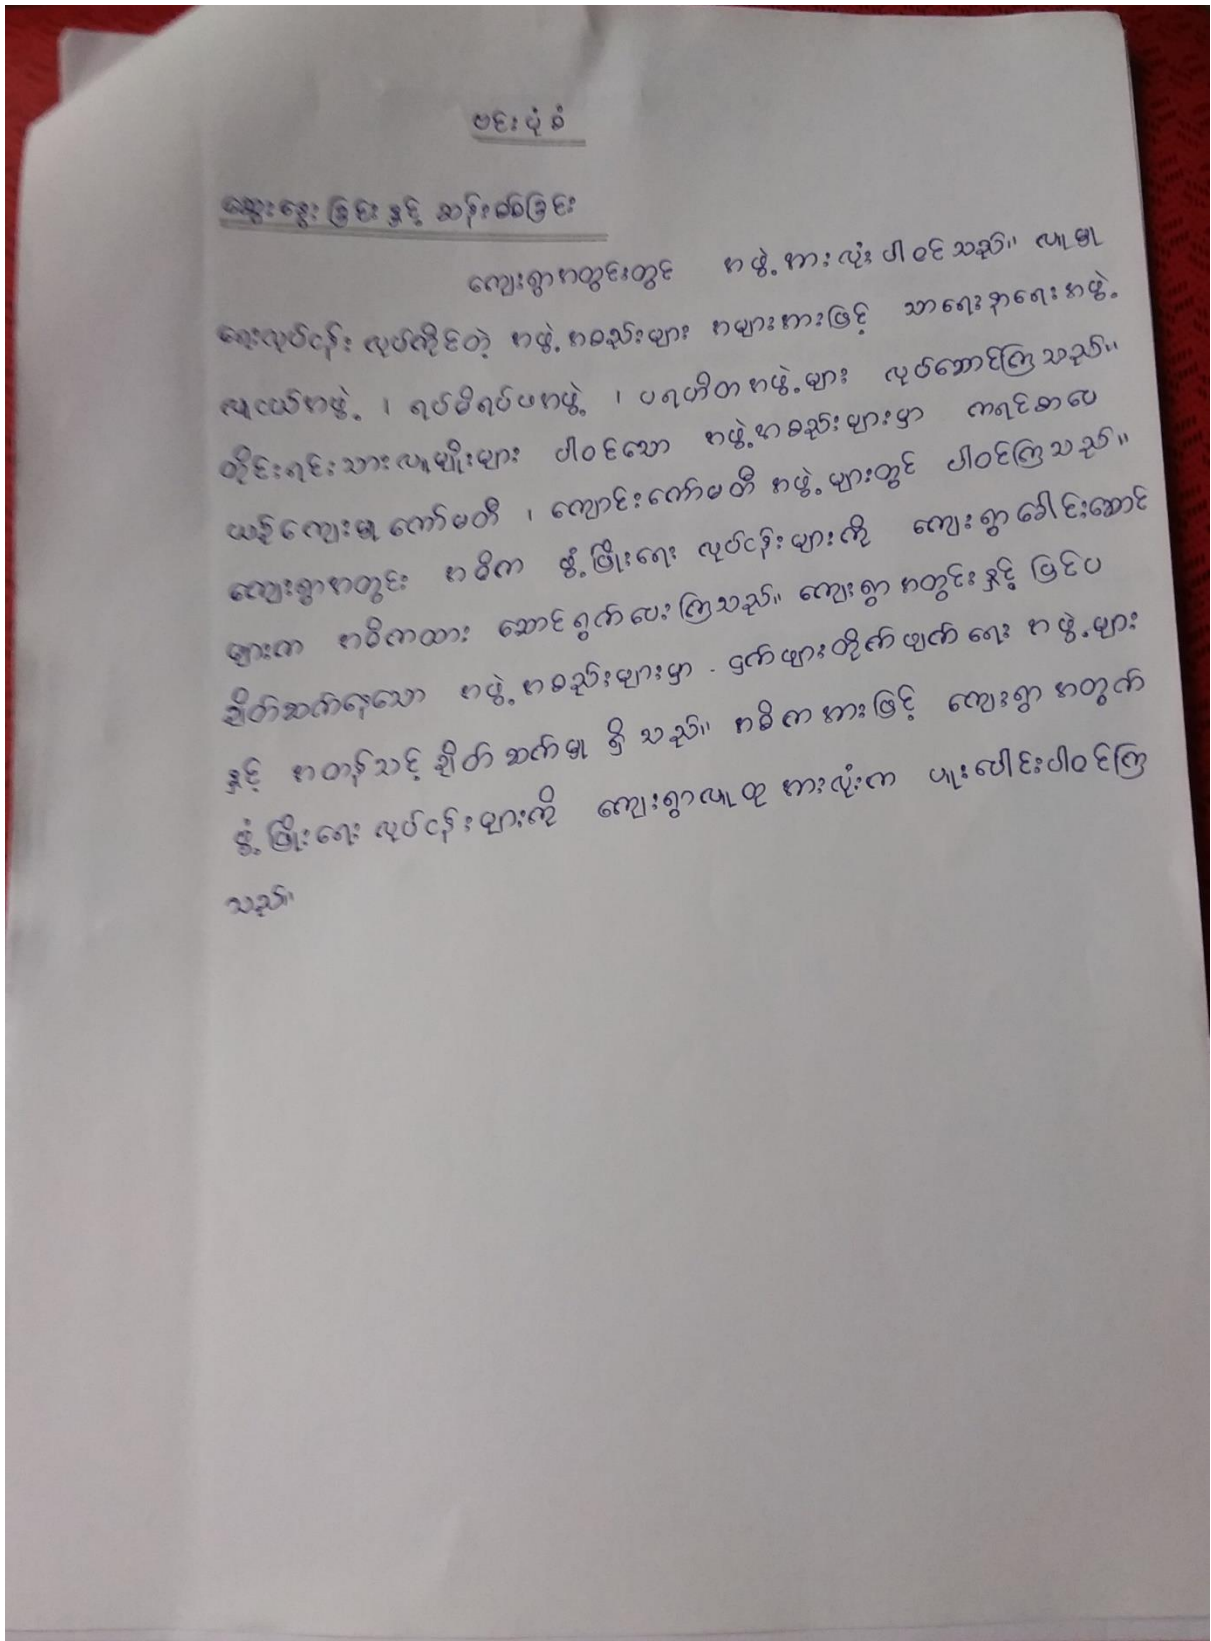 ဗင်းပုံစံ
ဆွေးနွေးခြင်းနှင့် ဆန်းစစ်ခြင်း
ကျေးရွာအတွင်းတွင် အဖွဲ့အားလုံးပါဝင်သည်။ လူမှု
ရေးလုပ်ငန်း လုပ်ကိုင်တဲ့ အဖွဲ့အစည်းများ အများအားဖြင့် သာရေးနာရေးအဖွဲ့
လူငယ်အဖွဲ့၊ ရပ်မိရပ်ဖအဖွဲ့၊ ပရဟိတအဖွဲ့များ လုပ်ဆောင်ကြသည်။
တိုင်းရင်းသားလူမျိုးများ ပါဝင်သော အဖွဲ့အစည်းများမှာ ကရင်စာပေ
ယဉ်ကျေးမှုကော်မတီ၊ ကျောင်းကော်မတီ အဖွဲ့များတွင် ပါဝင်ကြသည်။
ကျေးရွာအတွင်း အဓိက ဖွံ့ဖြိုးရေး လုပ်ငန်းများကို ကျေးရွာခေါင်းဆောင်
များက အဓိကထား ဆောင်ရွက်ပေးကြသည်။ ကျေးရွာအတွင်းနှင့် ပြင်ပ
ချိတ်ဆက်နေသော အဖွဲ့အစည်းများမှာ - ငှက်ဖျားတိုက်ဖျက်ရေး အဖွဲ့များ
နှင့် အတန်သင့် ချိတ်ဆက်မှု ရှိသည်။ အဓိကအားဖြင့် ကျေးရွာအတွက်
ဖွံ့ဖြိုးရေး လုပ်ငန်းများကို ကျေးရွာလူထုအားလုံးက ပူးပေါင်းပါဝင်ကြ
သည်။